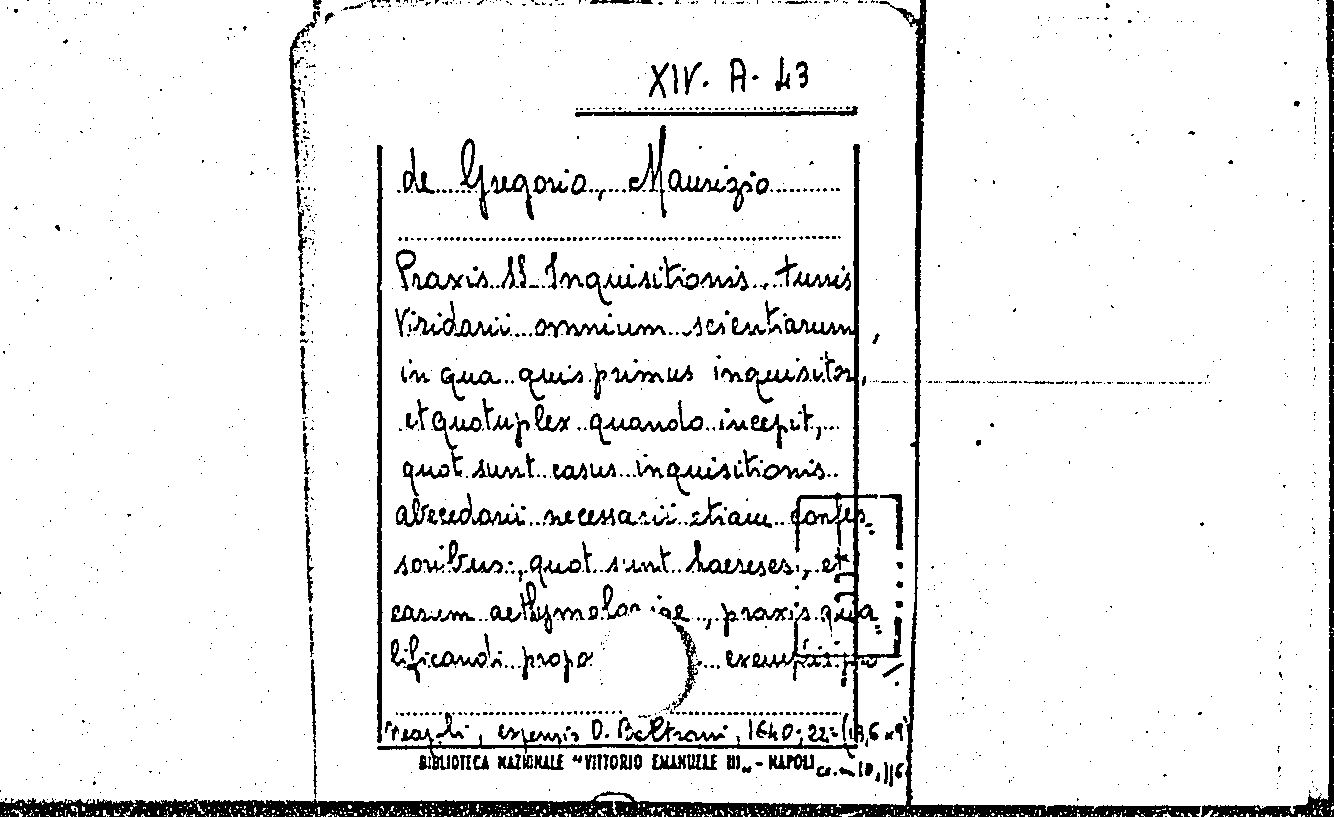 XIV. A. 43
de Gregorio, Maurizio
Praxis SS. Inquisitionis, turris
Viridarii omnium scientiarum,
in qua quis primus inquisitor,
et quotuplex quando incepit,
quot sunt casus inquisitionis
abecedarii necessarii etiam confes
soribus, quot sunt haereses, et
earum aethymologiae, praxis qua
lificandi propo exemplis
Neapoli, expensis D. Beltrani, 1640; 22=(13,6 x 9)
BIBLIOTECA NAZIONALE "VITTORIO EMANUELE III" - NAPOLI